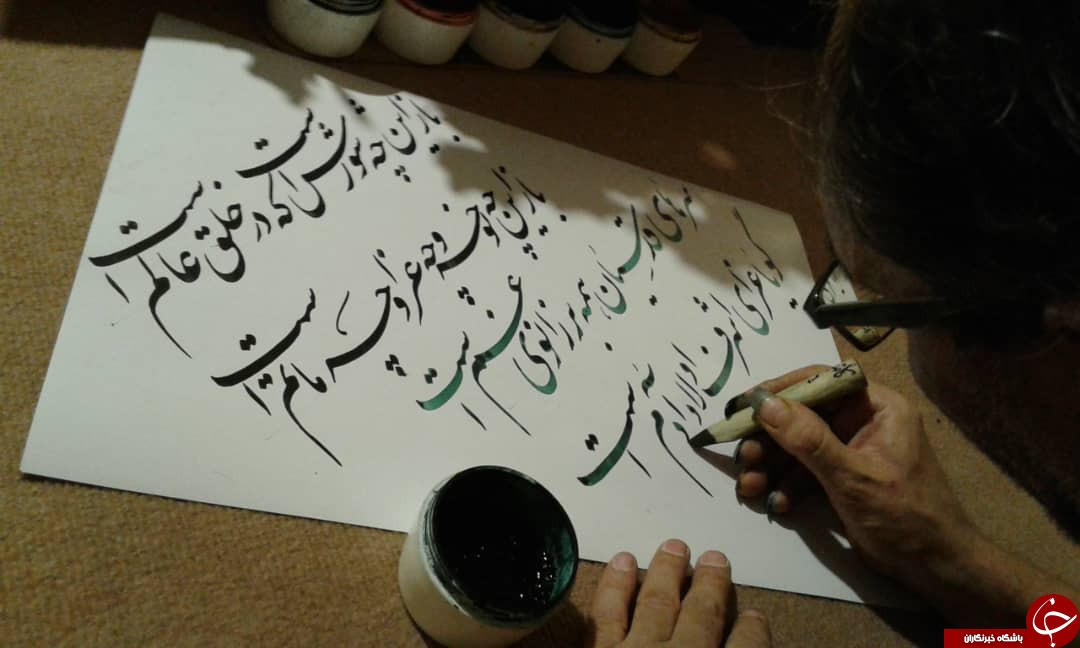 باز این چه شورش است که در خلق عالم است
باز این چه نوحه و چه عزا و چه ماتم است
سرهای قدسیان همه بر زانوی غم است
گویا عزای اشرف اولاد آدم است
باشگاه خبرنگاران